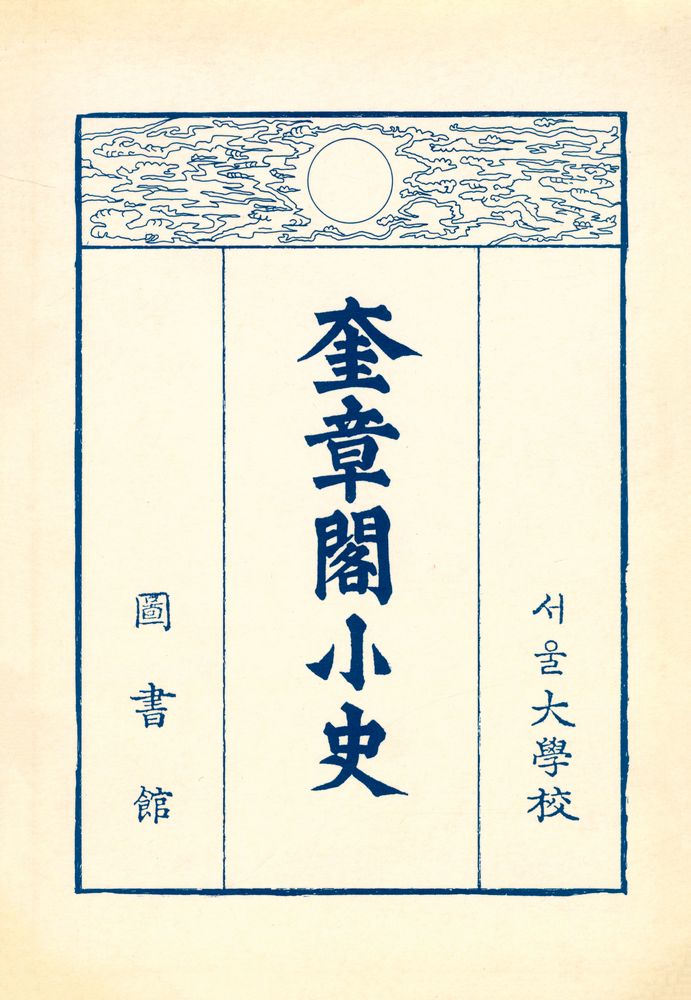 서울大學校
奎章閣小史
圖書館